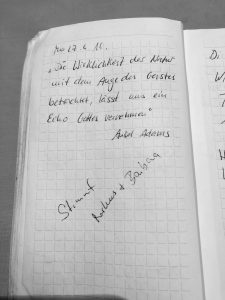 Mo 27. 6. 11.
„Die Wirklichkeit der Natur
mit dem Auge des Geistes
betrachtet, lässt uns ein
Echo Gottes vernehmen"
Ansel Adams
Stimmt
Markus + Barbara